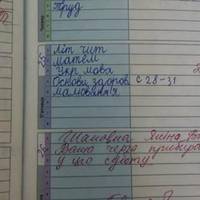 Труд
Літ чит
матем
Укр мова
Основи здоров. с 28-31
малювання
Шановна
Ваша черга
у цю суботу!